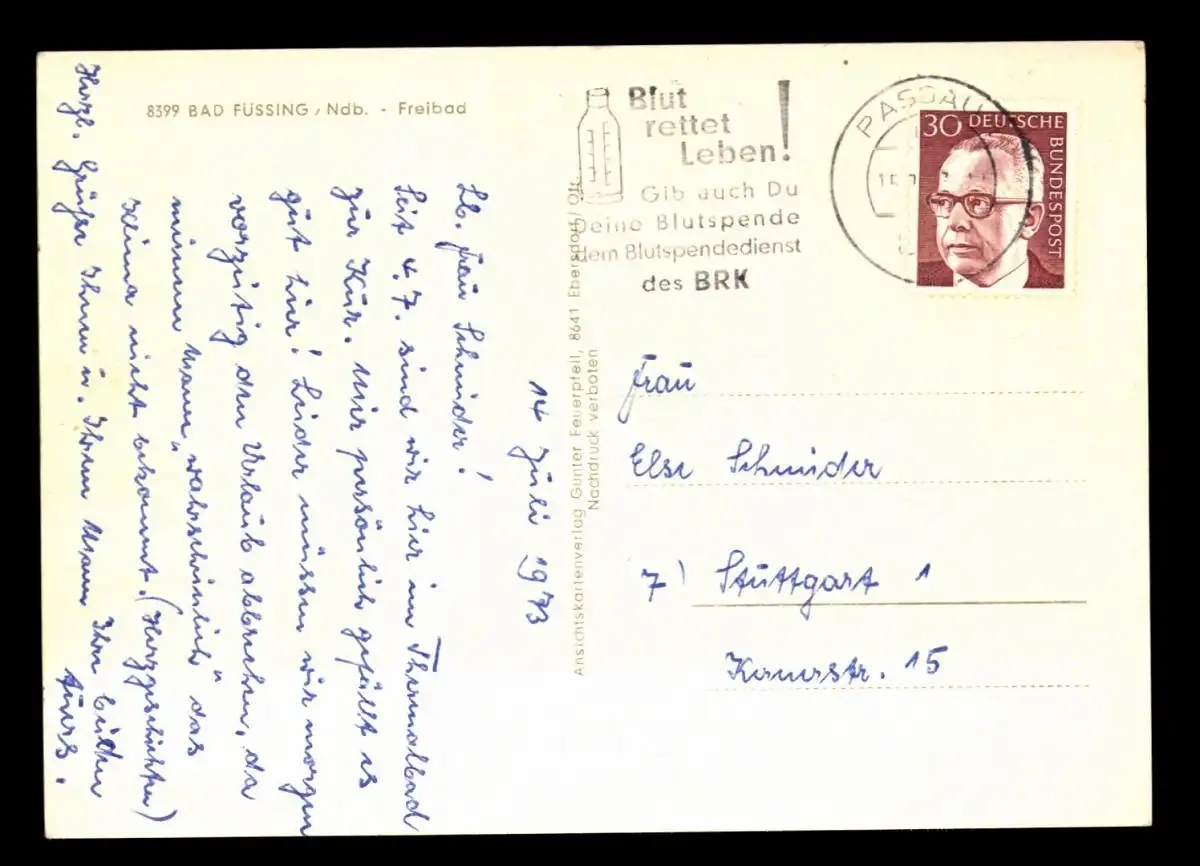 8399 BAD FÜSSING/Ndb. - Freibad
14 Juli 1973
Lb. Frau Schnider!
Seit 4.7. sind wir hier im Thermalbad
zur Kur. Mir persönlich gefällt es
gut hier! Leider müssen wir morgen
vorzeitig den Urlaub abbrechen, da
meinem Mann "wahrscheinlich" das
Klima nicht bekommt. (Herzgeschichten)
Herzl. Grüße Ihnen u. Ihrem Mann Ihre beiden
Ansichtskartenverlag Gunter Feuerpfeil, 8641 Ebersdorf/Ofr.
Nachdruck verboten
Blut
rettet
Leben!
Gib auch Du
Deine Blutspende
dem Blutspendedienst
des BRK
PASSAU
30 DEUTSCHE
BUNDESPOST
Frau
Else Schnider
7) Stuttgart 1
15